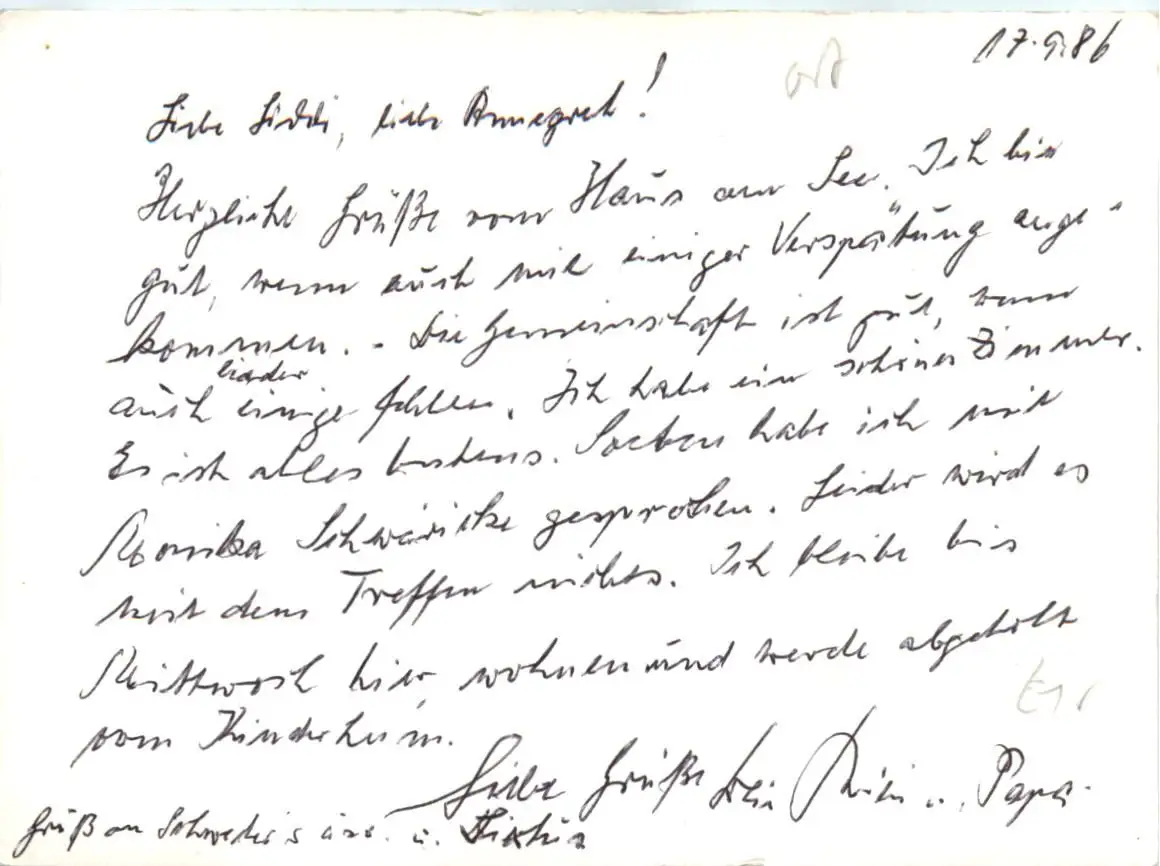 17.9.86
Liebe Liddi, liebe Annegret!
Herzliche Grüße vom Haus am See. Ich bin
gut, wenn auch mit einiger Verspätung ange-
kommen. - Die Gemeinschaft ist gut, wenn
auch leider einige fehlen. Ich habe ein schönes Zimmer.
Es ist alles bestens. Soeben habe ich mit
Monika gesprochen. Leider wird es
mit dem Treffen nichts. Ich bleibe bis
Mittwoch hier wohnen und werde abgeholt
vom Kinderheim.
Liebe Grüße Dein u. Papa.
Gruß an u.